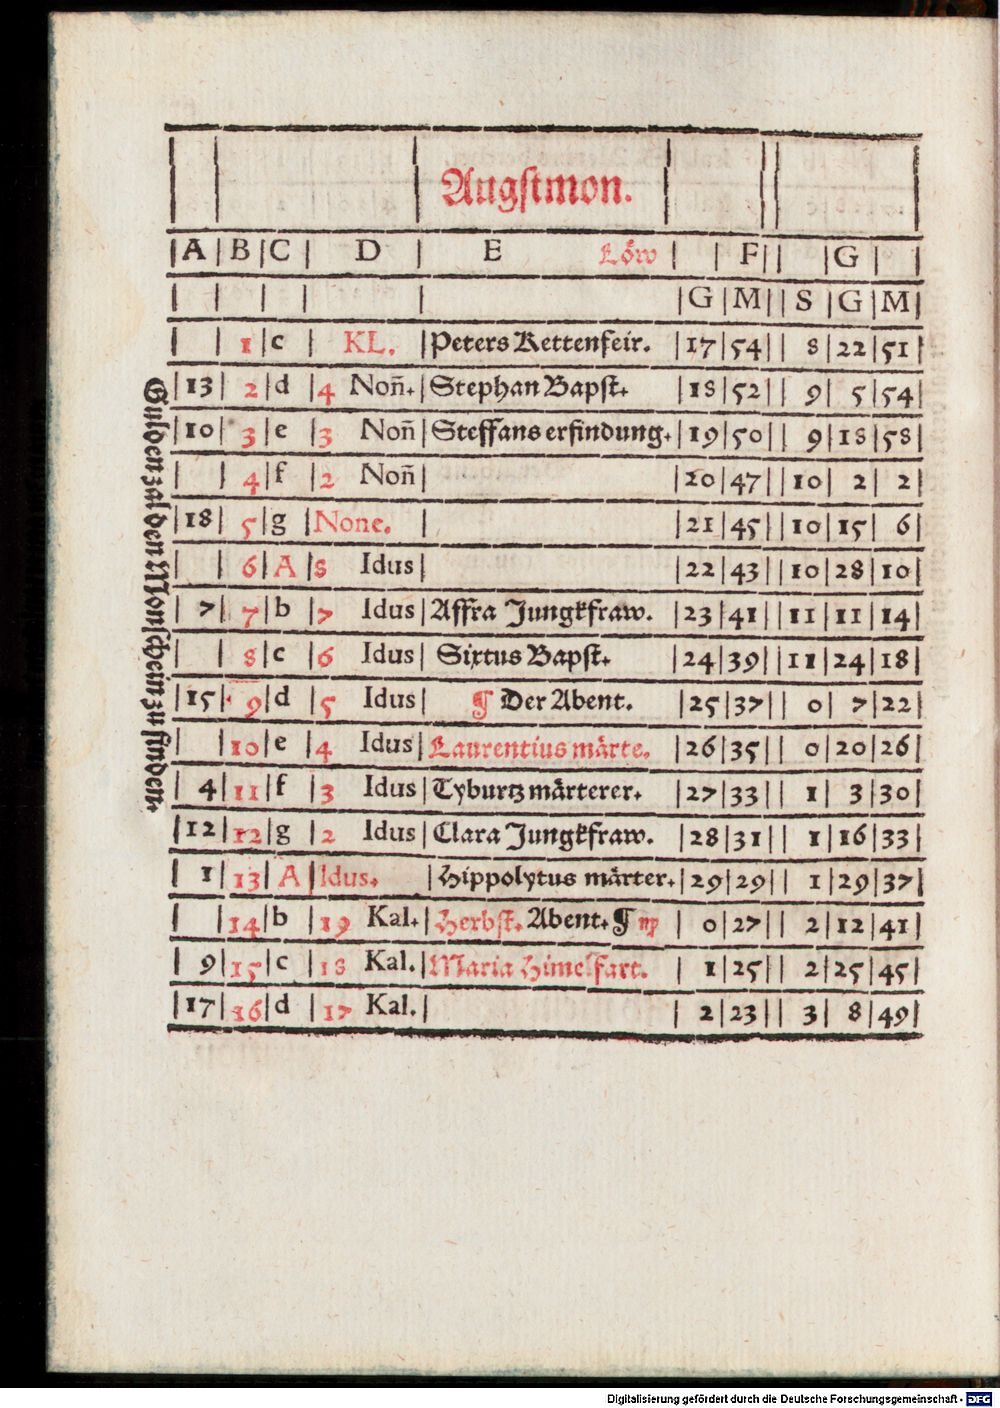 Augstmon.
A B C D E Löw F G
G M S G M
1 c KL. Peters Kettenfeir. 17 54 8 22 51
13 2 d 4 Noñ. Stephan Bapst. 18 52 9 5 54
10 3 e 3 Noñ Steffans erfindung. 19 50 9 18 58
4 f 2 Noñ 20 47 10 2 2
18 5 g None. 21 45 10 15 6
6 A 8 Idus 22 43 10 28 10
7 7 b 7 Idus Affra Jungkfraw. 23 41 11 11 14
8 c 6 Idus Sixtus Bapst. 24 39 11 24 18
15 9 d 5 Idus ¶ Der Abent. 25 37 0 7 22
10 e 4 Idus Laurentius märte. 26 35 0 20 26
4 11 f 3 Idus Tyburtz märterer. 27 33 1 3 30
12 12 g 2 Idus Clara Jungkfraw. 28 31 1 16 33
1 13 A Idus. Hippolytus märter. 29 29 1 29 37
14 b 19 Kal. Herbst. Abent. ¶ ♍ 0 27 2 12 41
9 15 c 18 Kal. Maria Himelfart. 1 25 2 25 45
17 16 d 17 Kal. 2 23 3 8 49
Gulden zal den Monschein zu finden.
Digitalisierung gefördert durch die Deutsche Forschungsgemeinschaft - DFG